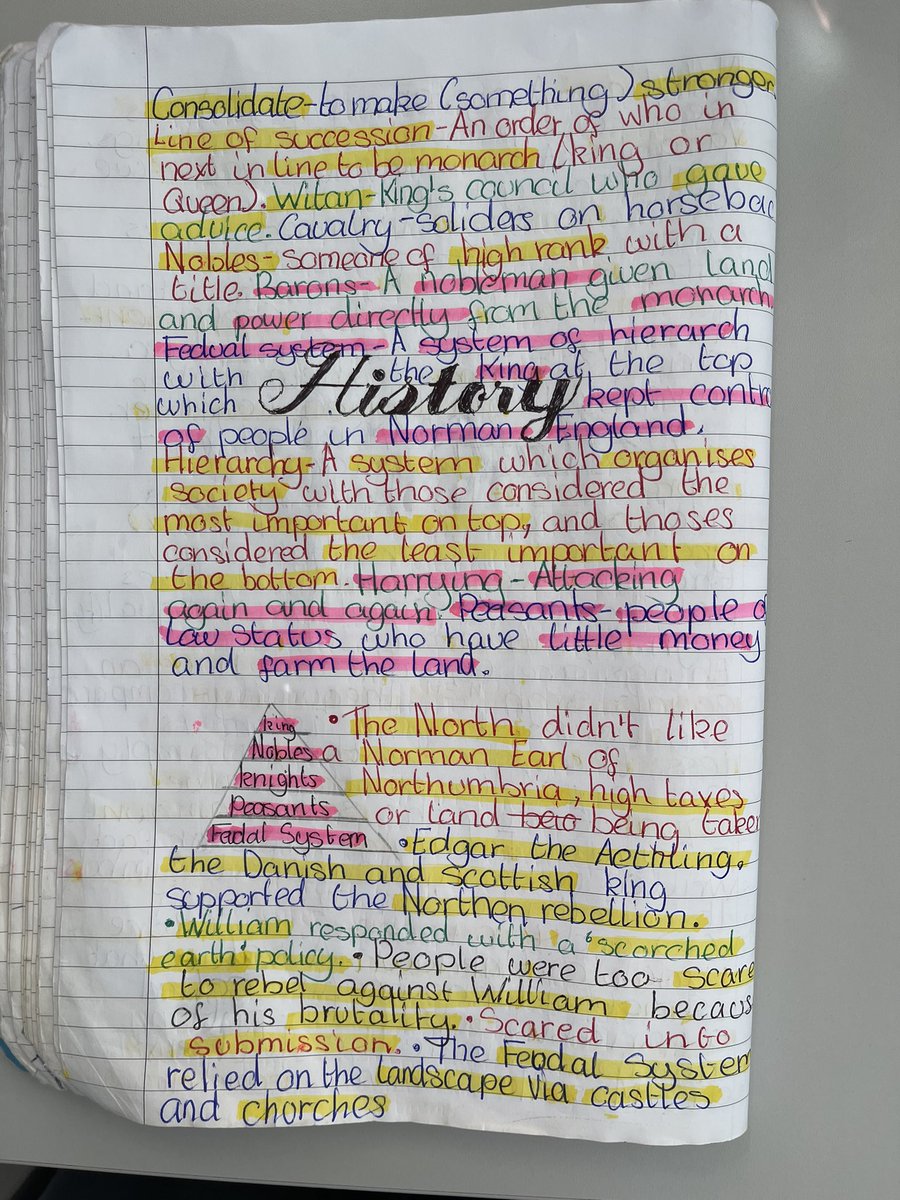 Consolidate-to make (something) stronger
Line of succession-An order of who in
next in line to be monarch (king or
Queen). Witan-King's council who gave
advice. Cavalry-soliders on horsebac
Nobles-someone of high rank with a
title. Barons- A nobleman given land
and power directly from the monarch
Fedual system-A system of hierarch
with the King at the top
which History kept contro
of people in Norman England.
Hierarchy-A system which organises
society with those considered the
most important on top, and thoses
considered the least important on
the bottom. Harrying-Attacking
again and again. Peasants-people o
Law status who have little money
and farm the land.
king
Nobles
knights
Peasants
Fedal System
• The North didn't like
a Norman Earl of
Northumbria, high taxes
or land being taken
• Edgar the Aethling,
the Danish and Scottish king
supported the Northen rebellion.
• William responded with a 'scorched
earth' policy. • People were too scare
to rebel against William becaus
of his brutality. • Scared into
submission. • The Feodal System
relied on the landscape via castles
and chorches